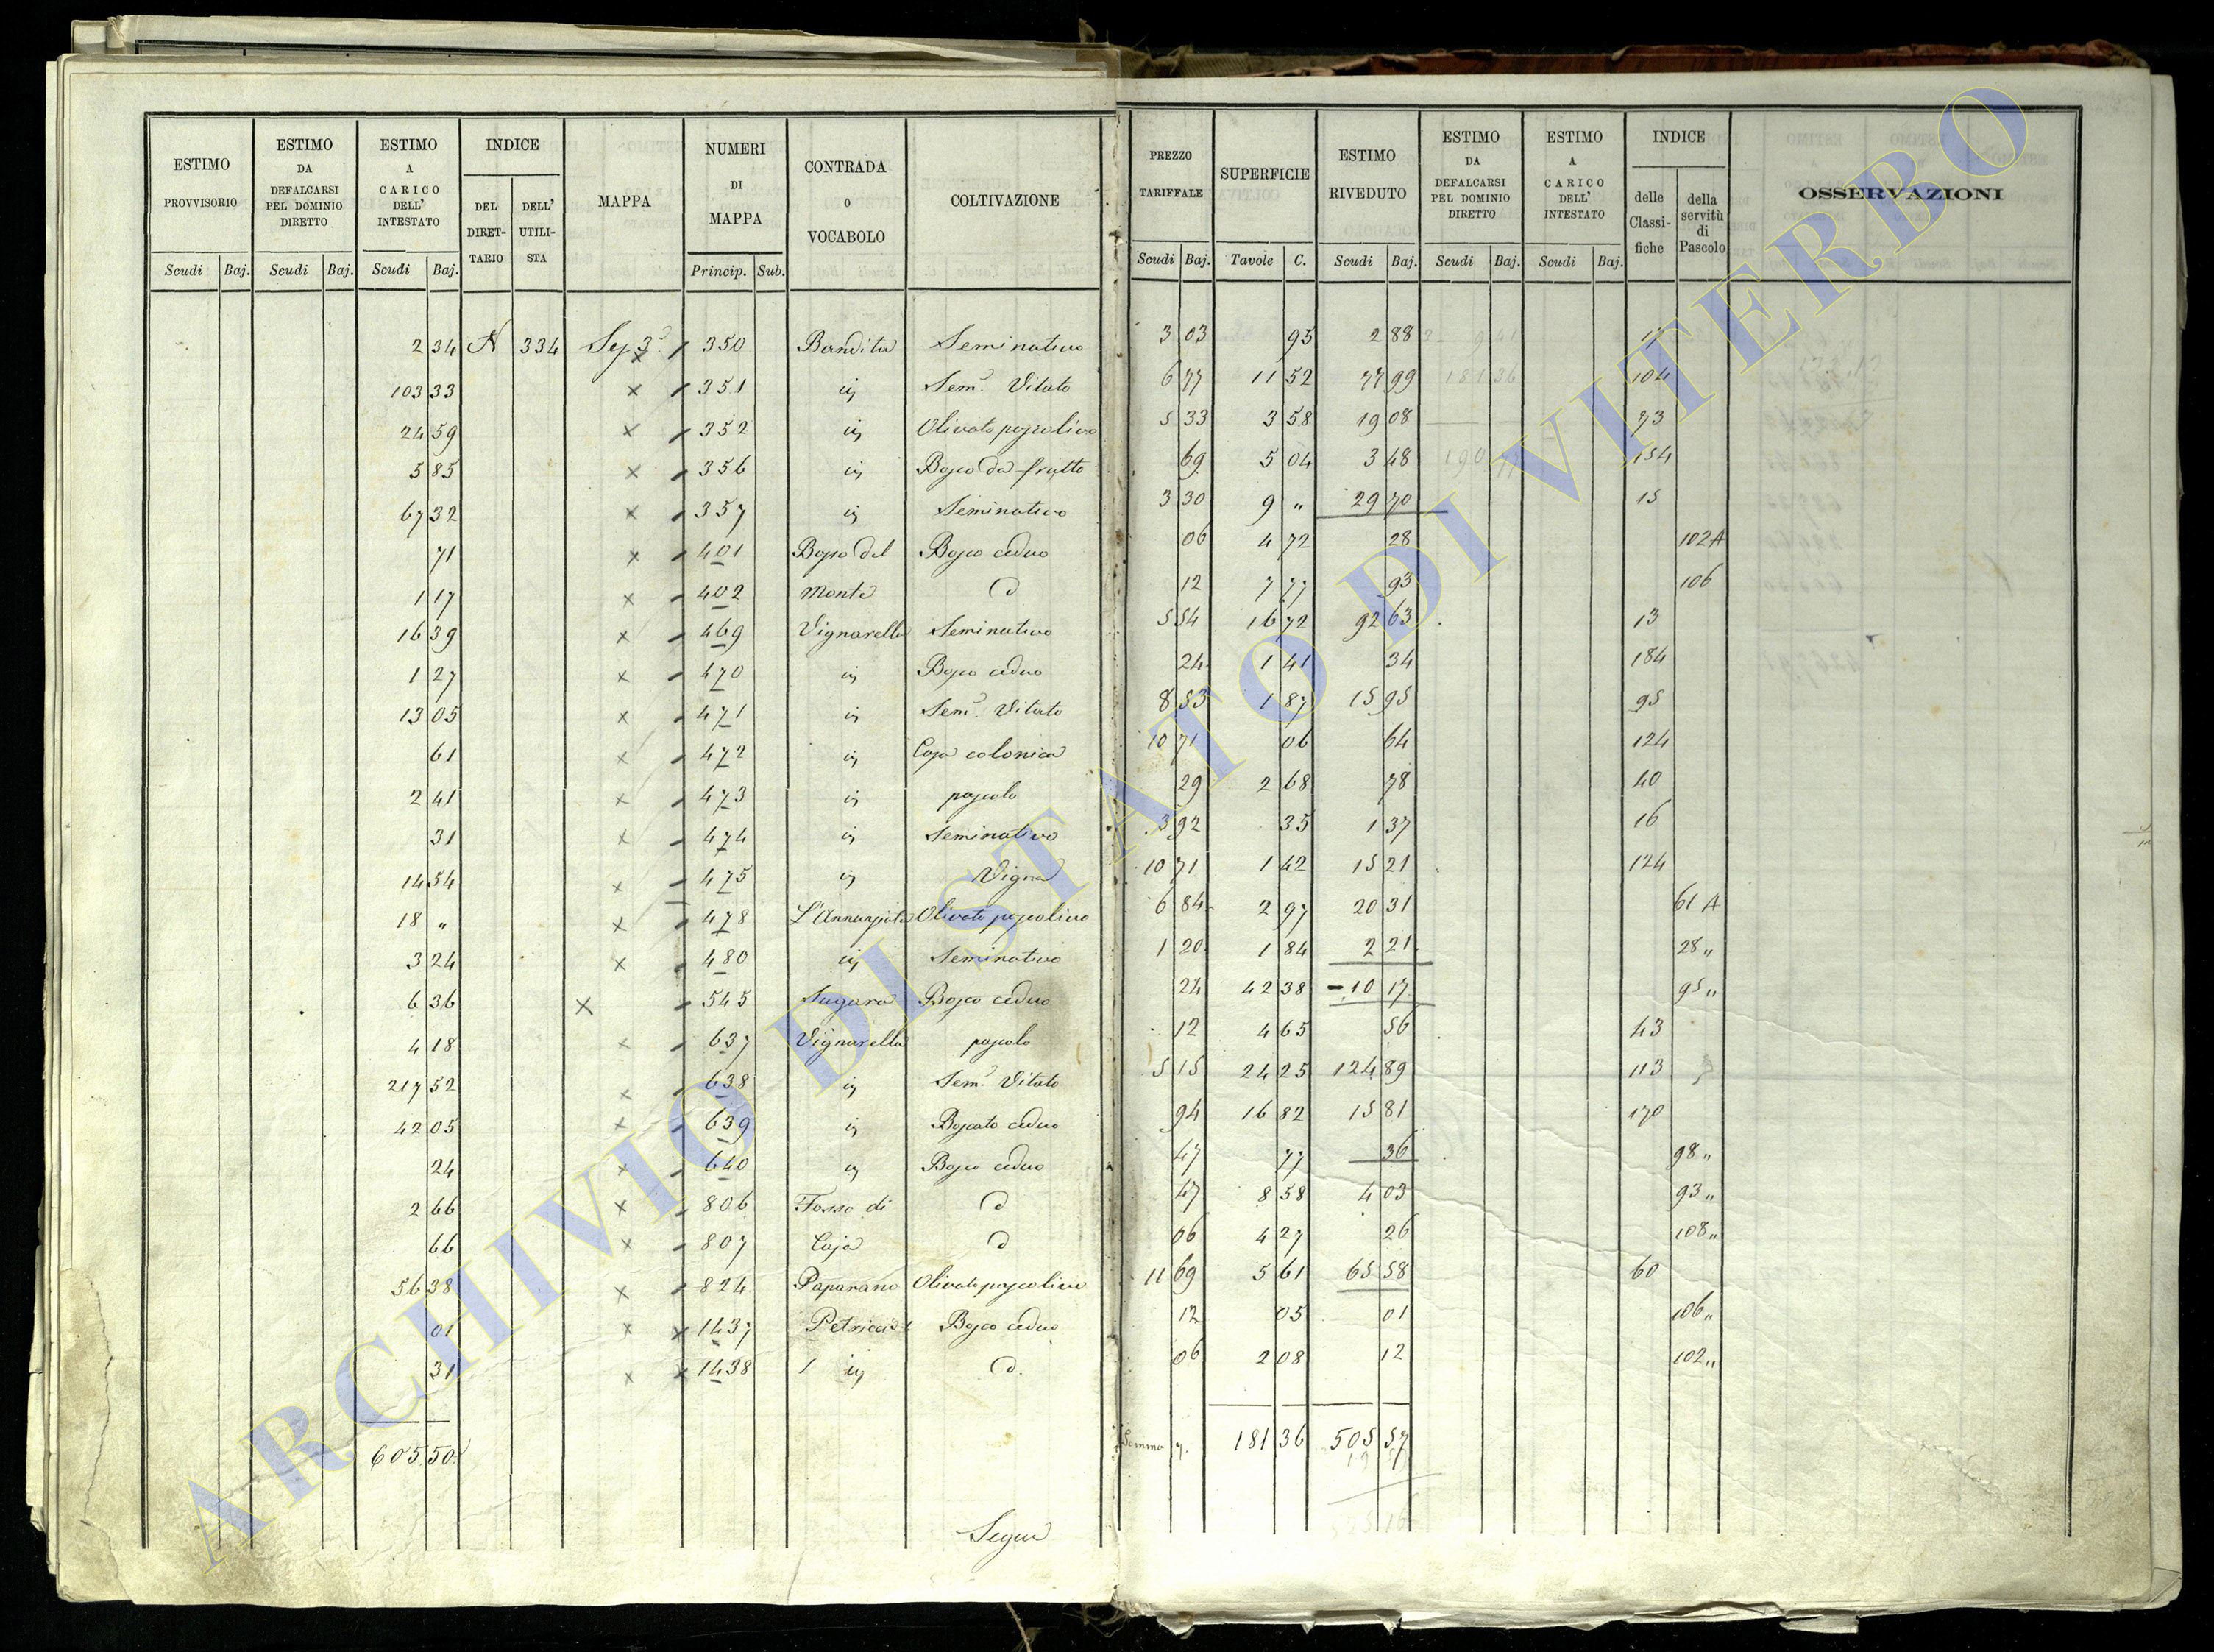 ESTIMO PROVVISORIO
ESTIMO DA DEFALCARSI PEL DOMINIO DIRETTO
ESTIMO A CARICO DELL' INTESTATO
INDICE
DEL DIRET-TARIO
DELL' UTILI-STA
MAPPA
NUMERI DI MAPPA
CONTRADA O VOCABOLO
COLTIVAZIONE
PREZZO TARIFFALE
SUPERFICIE
ESTIMO RIVEDUTO
ESTIMO DA DEFALCARSI PEL DOMINIO DIRETTO
ESTIMO A CARICO DELL' INTESTATO
INDICE
delle Classi-fiche
della servitù di Pascolo
OSSERVAZIONI
Scudi Baj. Scudi Baj. Scudi Baj. Princip. Sub. Scudi Baj. Tavole C. Scudi Baj. Scudi Baj. Scudi Baj.
2 34 N 334 Sez 3ª 350 Bandita Seminativo 3 03 95 2 88 17
103 33 × 351 id Semº Vitato 6 77 11 52 77 99 104
24 59 × 352 id Olivato pascolivo 5 33 3 58 19 08 73
5 85 × 356 id Bosco da frutto 69 5 04 3 48 154
67 32 × 357 id Seminativo 3 30 9 „ 29 70 15
71 × 401 Bosco del Bosco ceduo 06 4 72 28 102 A
1 17 × 402 Monte d 12 7 77 93 106
16 39 × 469 Vignarella Seminativo 5 54 16 72 92 63 13
1 27 × 470 id Bosco ceduo 24 1 41 34 184
13 05 × 471 id Semº Vitato 8 53 1 87 15 95 95
61 × 472 id Casa colonica 10 71 06 64 124
2 41 × 473 id pascolo 29 2 68 78 40
31 × 474 id Seminativo 3 92 35 1 37 16
14 54 × 475 id Vigna 10 71 1 42 15 21 124
18 „ × 478 L'Annunziata Olivato pascolivo 6 84 2 97 20 31 61 A
3 24 × 480 id Seminativo 1 20 1 84 2 21 28 „
6 36 × 545 Sugara Bosco ceduo 24 42 38 10 17 95 „
4 18 × 637 Vignarella pascolo 12 4 65 56 43
217 52 × 638 id Semº Vitato 5 15 24 25 124 89 113
42 05 × 639 id Boscato ceduo 94 16 82 15 81 170
24 × 640 id Bosco ceduo 47 77 36 98 „
2 66 × 806 Fosso di d 47 8 58 4 03 93 „
66 × 807 Caja d 06 4 27 26 108 „
56 38 × 824 Paparano Olivato pascolivo 11 69 5 61 65 58 60
01 × × 1437 Bosco ceduo 12 05 01 106 „
31 × × 1438 id d. 06 2 08 12 102 „
605.50 Somma 181 36 505 57
Segue
ARCHIVIO DI STATO DI VITERBO